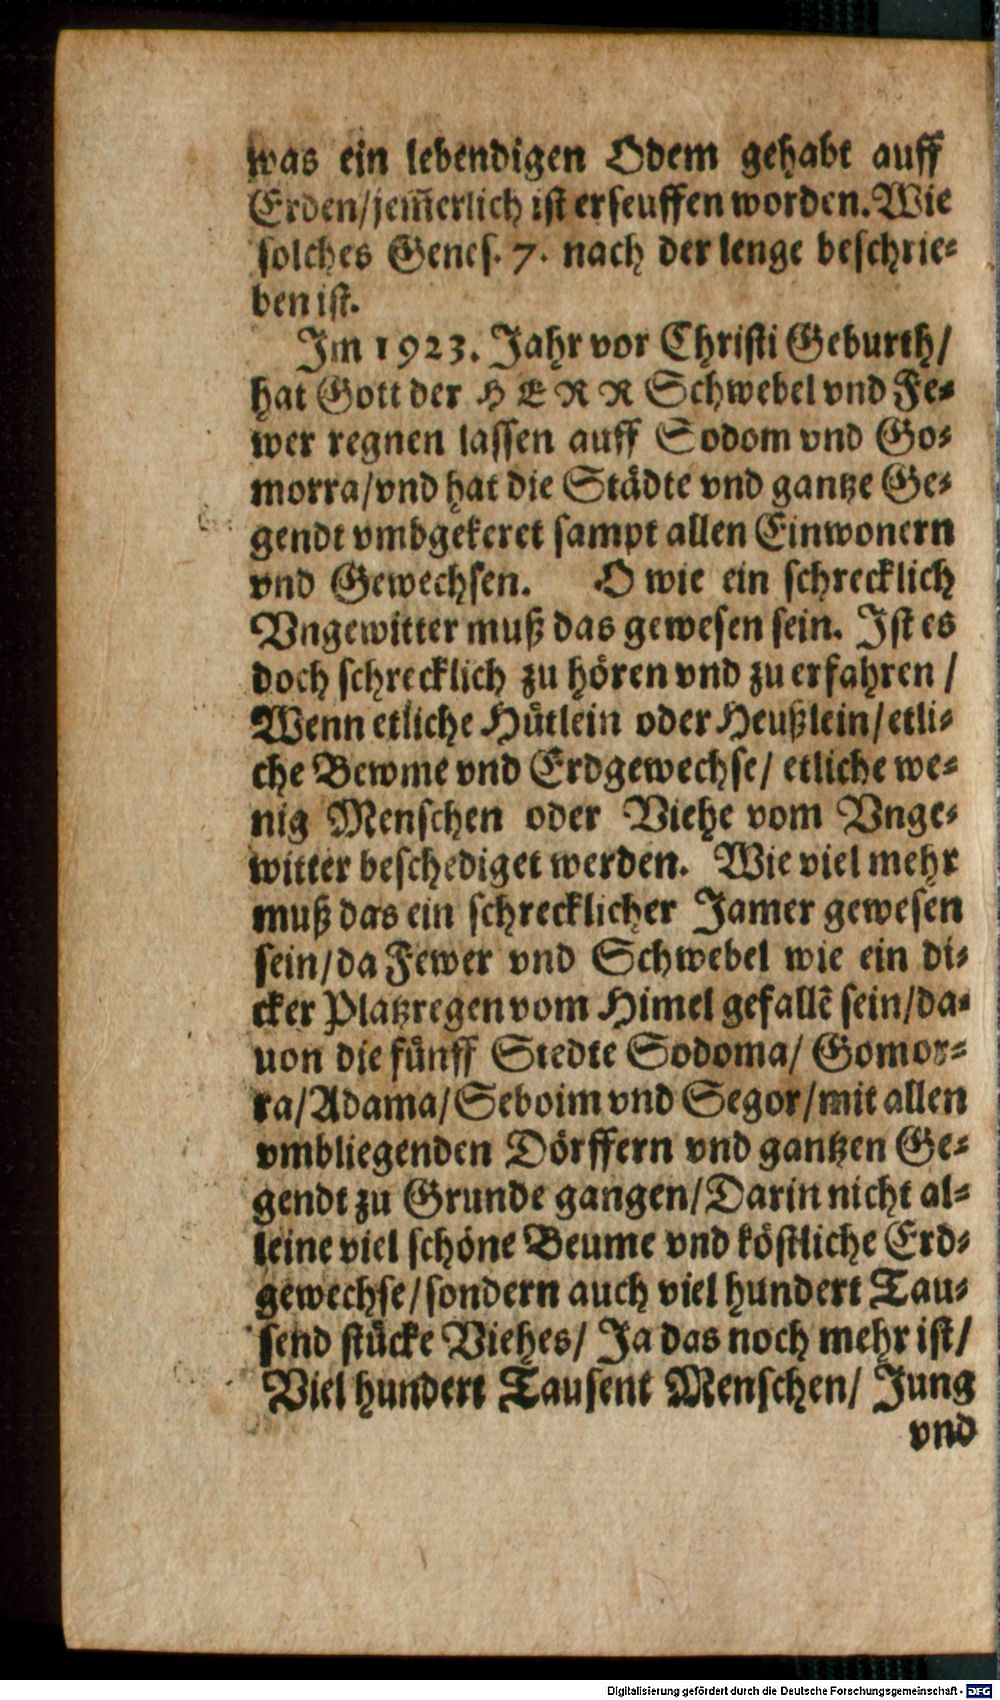 was ein lebendigen Odem gehabt auff
Erden/jem̃erlich ist erseuffen worden. Wie
solches Genes. 7. nach der lenge beschrie-
ben ist.
Im 1923. Jahr vor Christi Geburth/
hat Gott der HERR Schwebel vnd Fe-
wer regnen lassen auff Sodom vnd Go-
morra/vnd hat die Städte vnd gantze Ge-
gendt vmbgekeret sampt allen Einwonern
vnd Gewechsen. O wie ein schrecklich
Vngewitter muß das gewesen sein. Ist es
doch schrecklich zu hören vnd zu erfahren/
Wenn etliche Hütlein oder Heußlein/etli-
che Bewme vnd Erdgewechse/ etliche we-
nig Menschen oder Viehe vom Vnge-
witter beschediget werden. Wie viel mehr
muß das ein schrecklicher Jamer gewesen
sein/da Fewer vnd Schwebel wie ein di-
cker Platzregen vom Himel gefallẽ sein/da-
uon die fünff Stedte Sodoma/ Gomor-
ra/Adama/Seboim vnd Segor/mit allen
vmbliegenden Dörffern vnd gantzen Ge-
gendt zu Grunde gangen/Darin nicht al-
leine viel schöne Beume vnd köstliche Erd-
gewechse/sondern auch viel hundert Tau-
send stücke Viehes/ Ja das noch mehr ist/
Viel hundert Tausent Menschen/ Jung
vnd
Digitalisierung gefördert durch die Deutsche Forschungsgemeinschaft - DFG